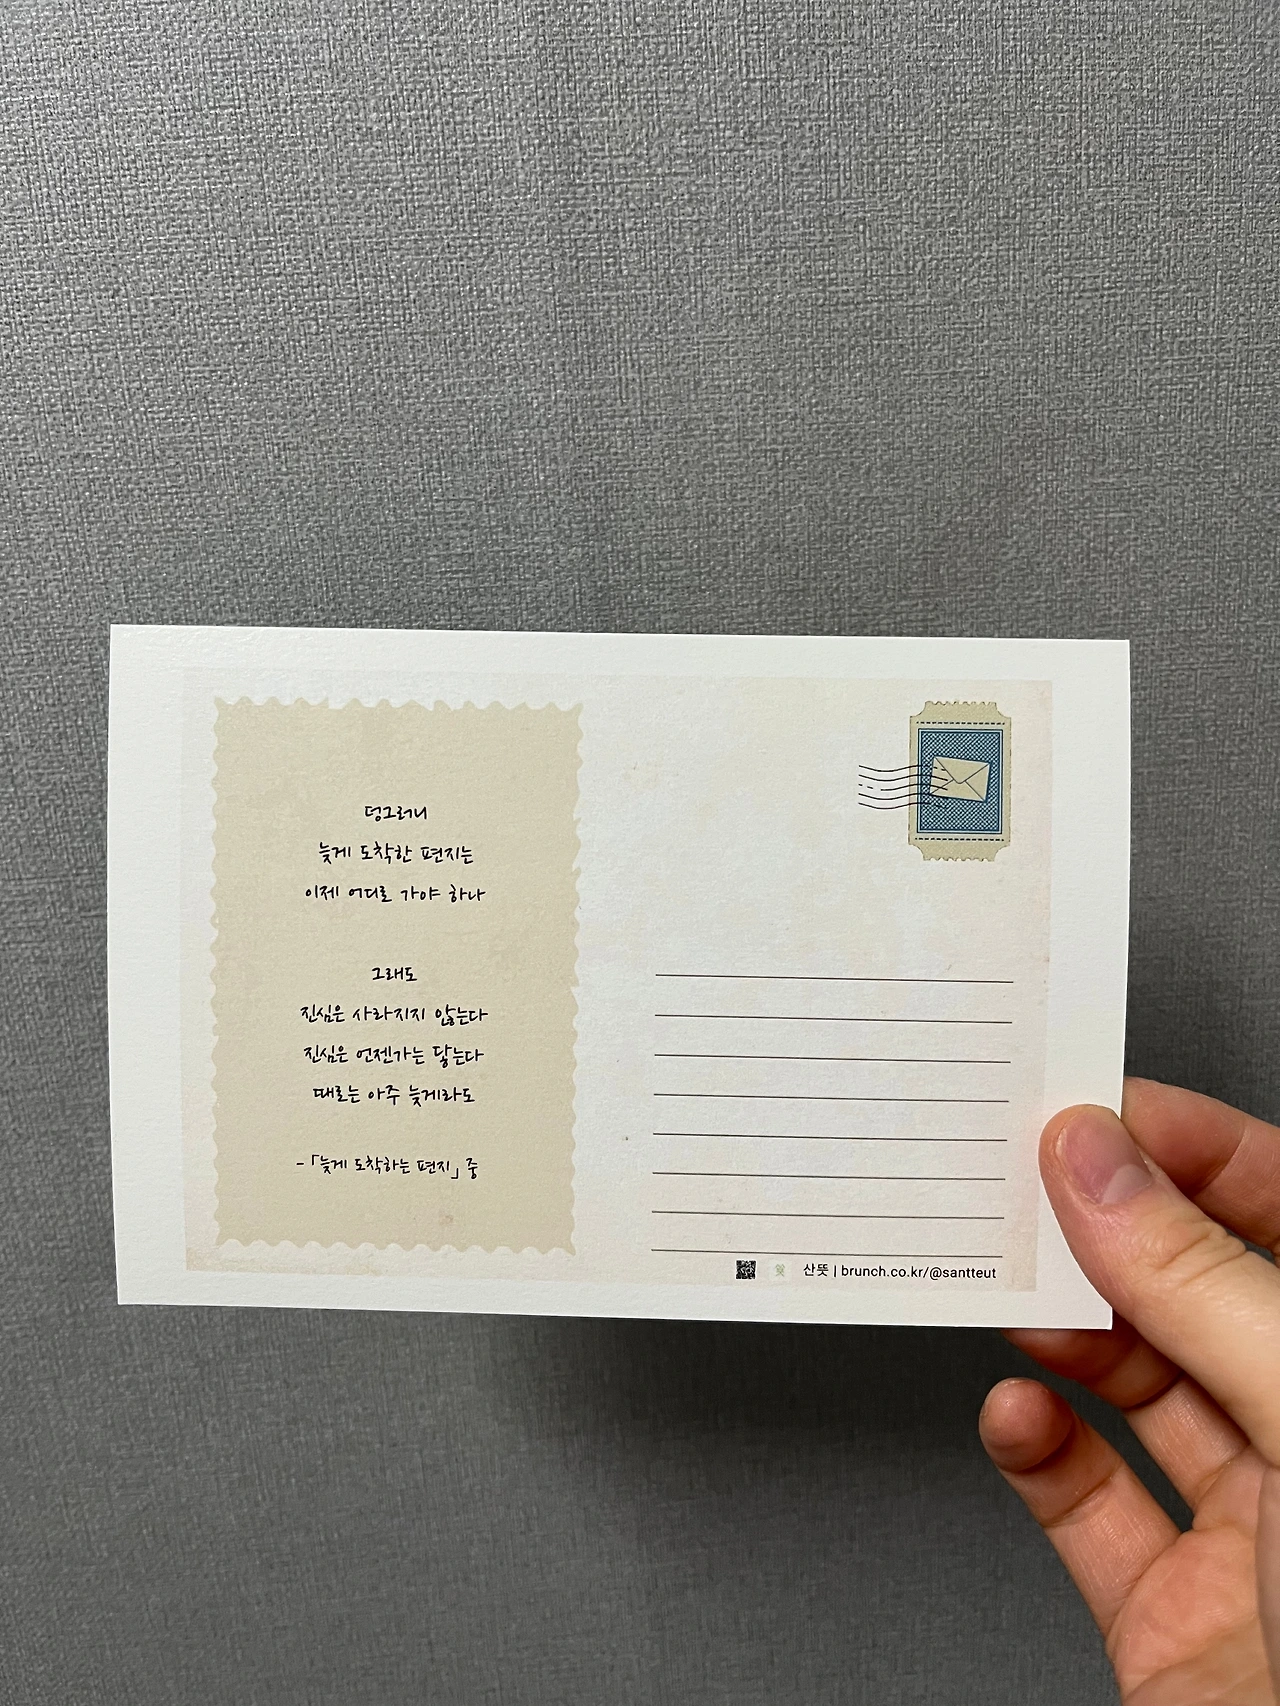 덩그러니
늦게 도착한 편지는
이제 어디로 가야 하나
그래도
진심은 사라지지 않는다
진심은 언젠가는 닿는다
때로는 아주 늦게라도
-「늦게 도착하는 편지」 중
산뜻 | brunch.co.kr/@santteut